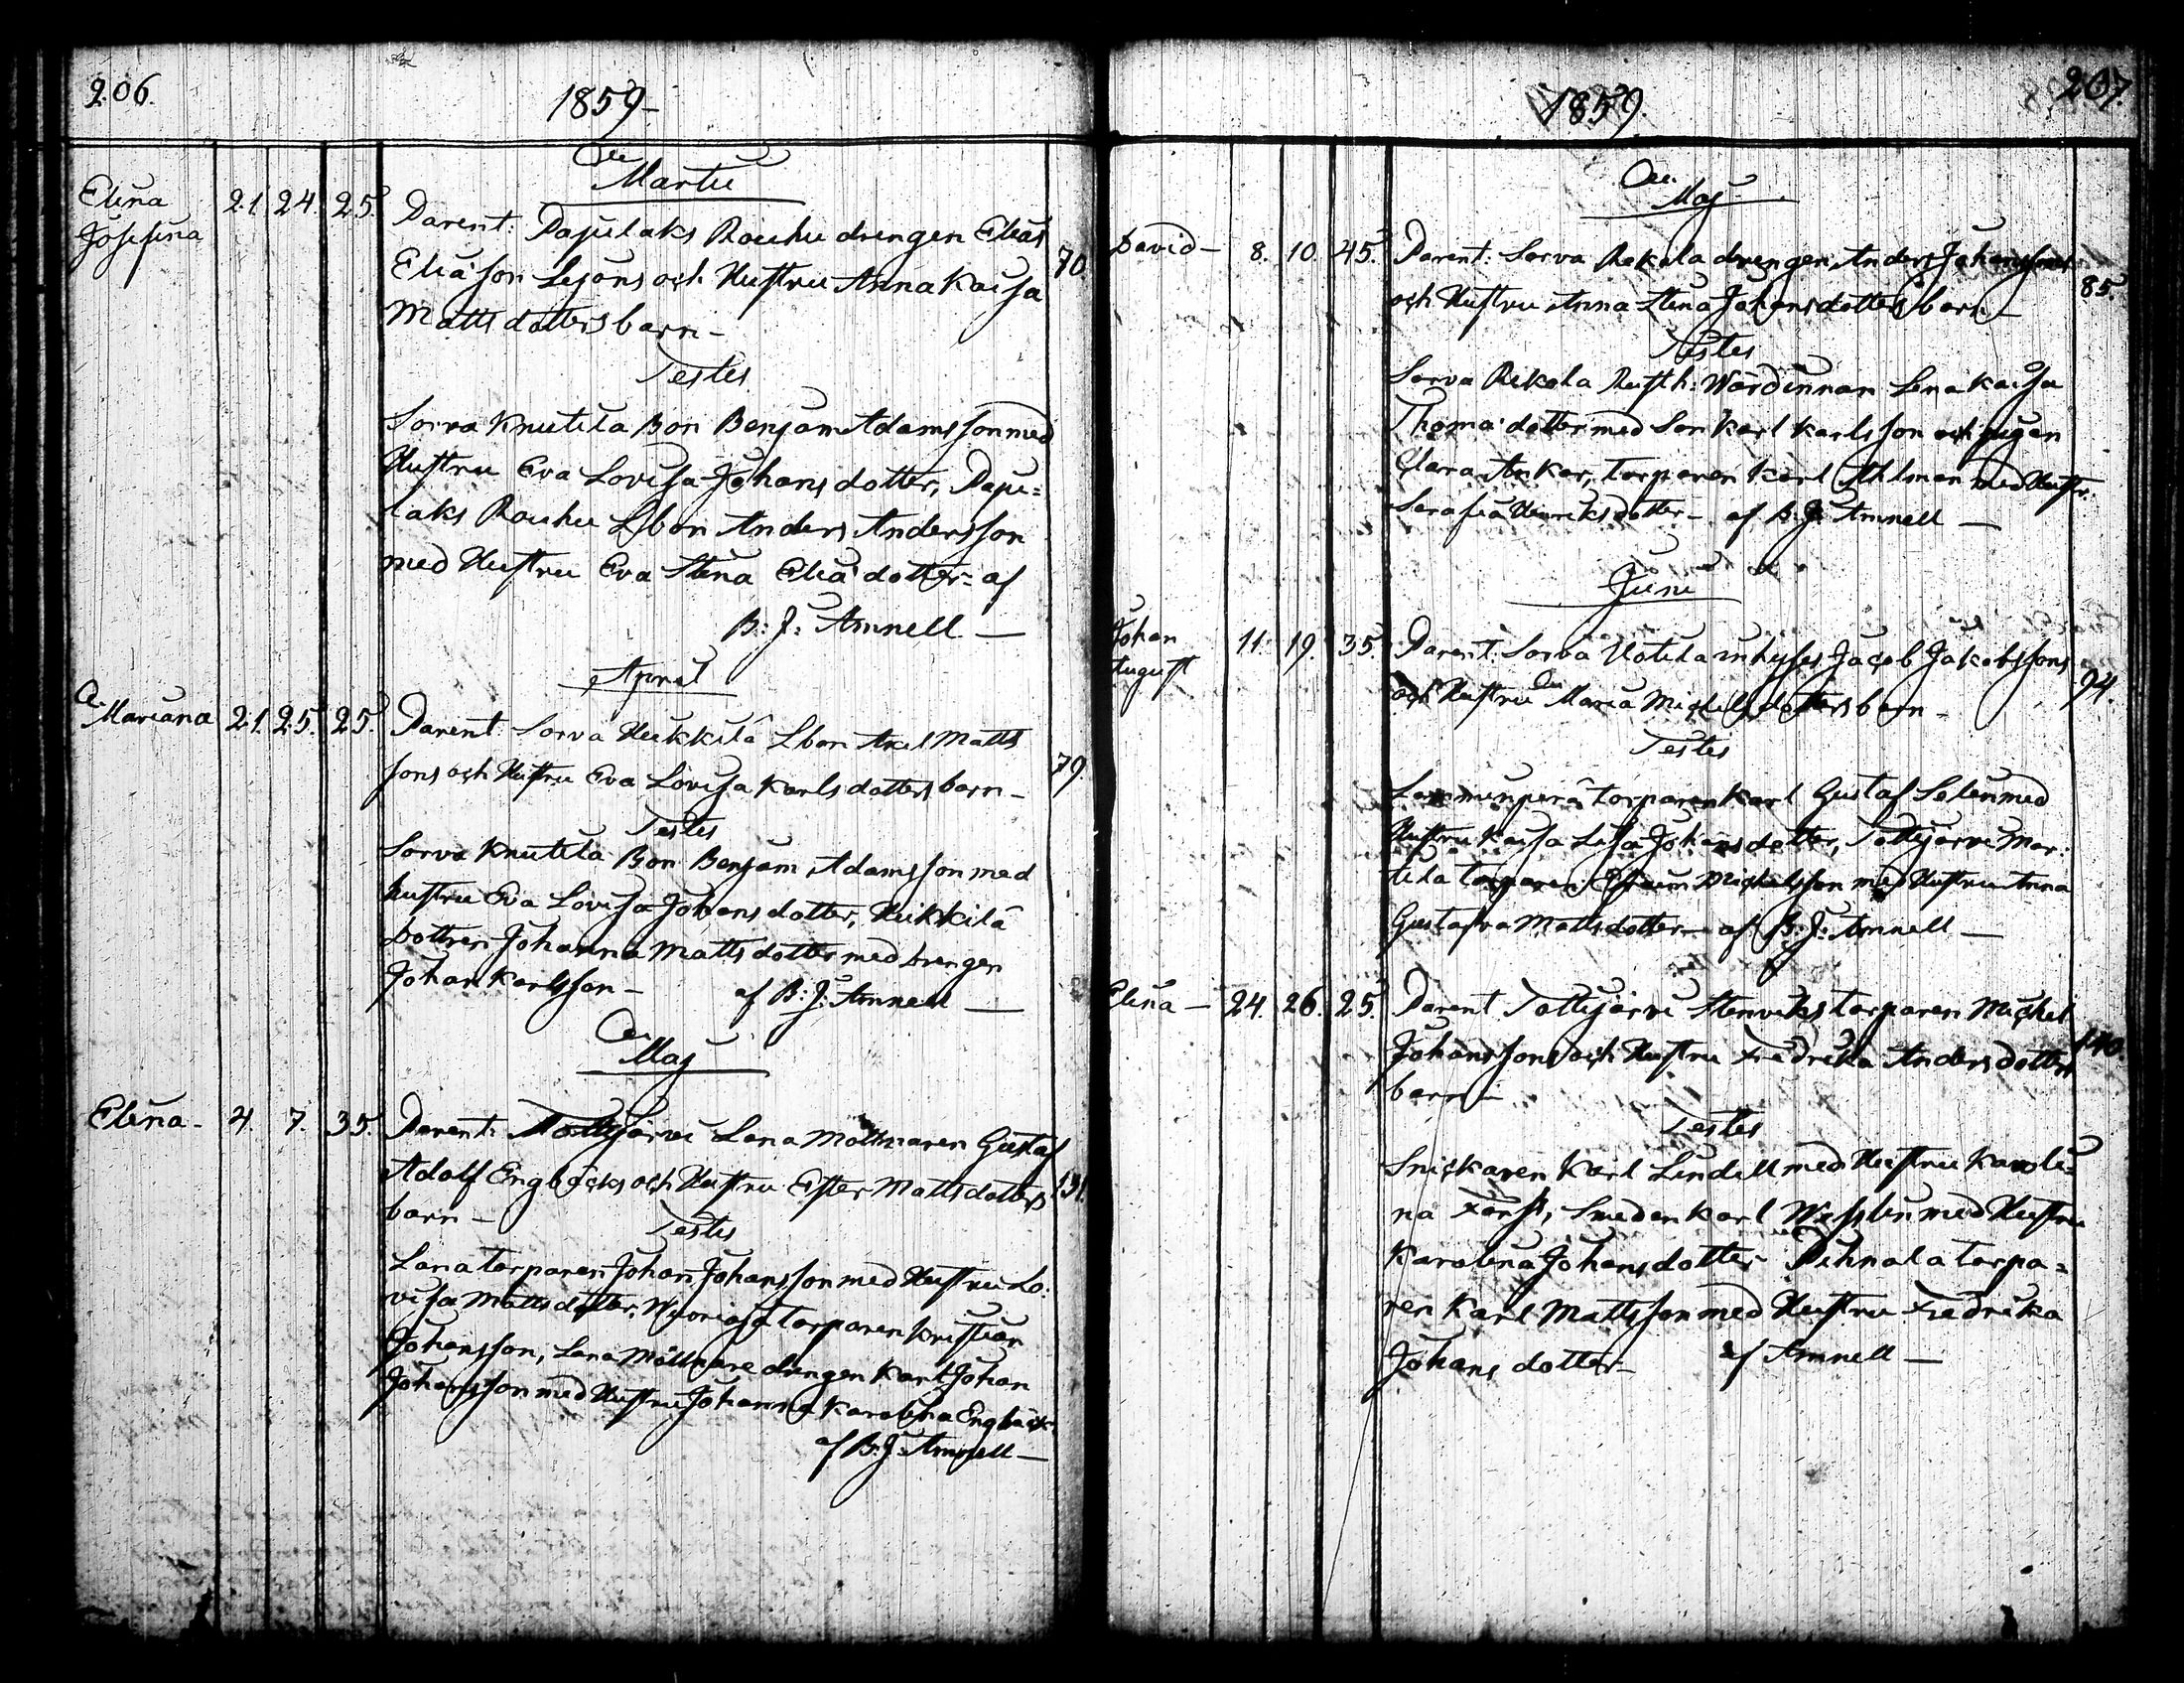 206.
1859-
Martii
Elina 21 24. 25. Parent: Pajulaks Rouhu drengen Elias
Josefina Eliasson Lejons och Hustru Anna Kaisa 70
Mattsdotters barn-
Testes
Sorva Knutila Bon Benjam Adamsson med
Hustru Eva Lovisa Johansdotter, Paju=
laks Rouhu Lbon Anders Andersson
med Hustru Eva Stina Eliadotter- af
B: J: Amnell —
April
Mariana 21. 25. 25. Parent: Sorva Heikkilä Lbon Axel Matts
sons och Hustru Eva Lovisa Karlsdotters barn- 79.
Testes
Sorva Knutila Bon Benjam Adamsson med
hustru Eva Lovisa Johansdotter, Heikkilä
Dottren Johanna Mattsdotter med drengen
Johan Karlsson- af B: J: Amnell —
Maj
Elina- 4. 7. 35. Parent: Lana Möllnaren Gustaf
Adolf Engbäcks och Hustru Ester Mattsdotters 131.
barn-
Testes
Lana torparen Johan Johansson med Hustru Lo:
visa Mattsdotter, torparen Kristian
Johansson, Lana Möllnare drengen Karl Johan
Johansson med Hustru Johanna Karolina Engbäck
af B: J: Amnell —
207.
1859.
Maj
David- 8. 10. 45. Parent: Sorva Rekola drengen Anders Johanssons
och Hustru Anna Stina Johansdotters barn- 85.
Testes
Sorva Rekola Rusth: Wärdinnan Lena Kaisa
Thomadotter med Son Karl Karlsson och pigan
Clara Ankar, torparen Karl Ahlman med Hustr:
Serafia Henriksdotter- af B: J: Amnell —
Juni
Johan 11. 19. 35. Parent: Sorva Uotila inhyses Jacob Jakobssons
August och Hustru Maria Michelsdotters barn- 94.
Testes
torparen Karl Gustaf Selin med
Hustru Kaisa Lisa Johansdotter, Tottijärvi Mar:
tila torparen Efraim Michelsson med Hustru Anna
Gustafva Mattsdotter- af B: J: Amnell —
Elina- 24. 26. 25. Parent. Tottijärvi Stenviks torparen Michel
Johanssons och Hustru Fredrika Andersdotters 140
barn-
Testes
Snickaren Karl Lindell med Hustru Karoli=
na Forss, Smeden Karl Wesslin med Hustru
Karolina Johansdotter Pihnala torpa=
ren Karl Mattsson med Hustru Fredrika
Johansdotter- af Amnell —